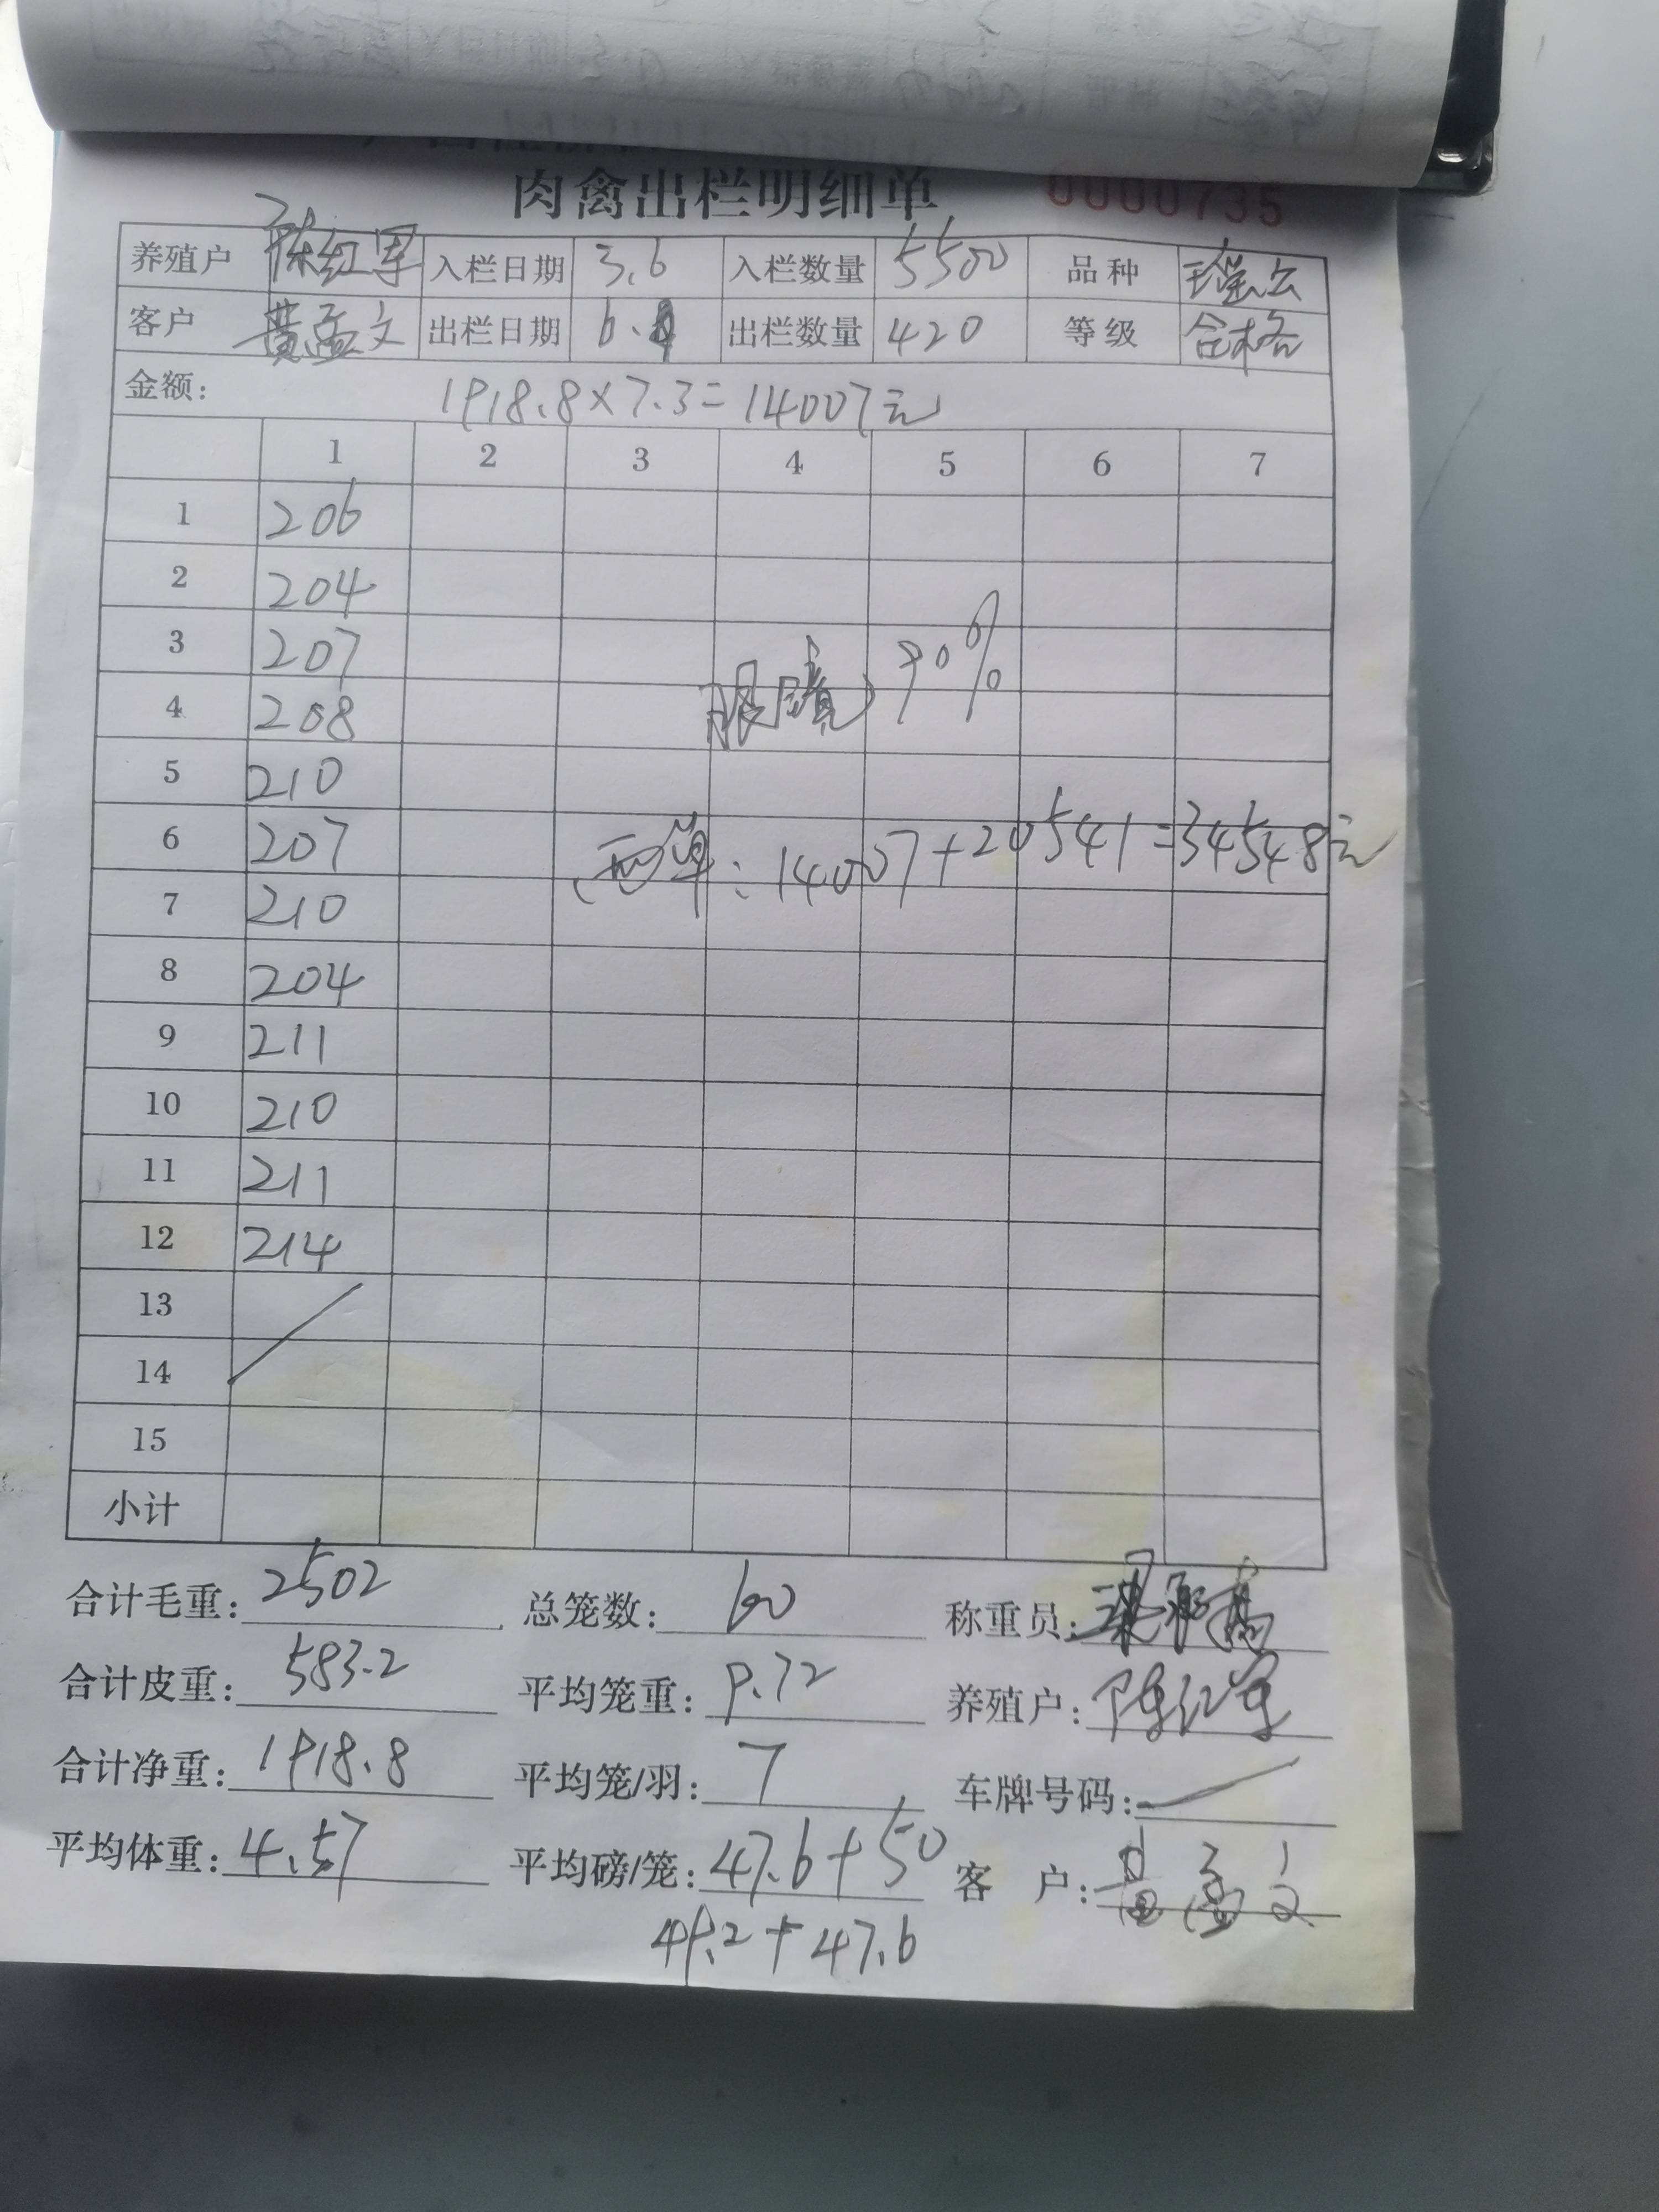 肉禽出栏明细单 0000735
养殖户 陈红军 入栏日期 3.6 入栏数量 5500 品种
客户 黄孟文 出栏日期 6. 出栏数量 420 等级 合格
金额: 1918.8×7.3=14007元
1 2 3 4 5 6 7
1 206
2 204
3 207
4 208
眼睛 90%
5 210
6 207
两单:14007+20541=34548元
7 210
8 204
9 211
10 210
11 211
12 214
13
14
15
小计
合计毛重: 2502 总笼数: 60 称重员:
合计皮重: 583.2 平均笼重: 9.72 养殖户: 陈红军
合计净重: 1918.8 平均笼/羽: 7 车牌号码:
平均体重: 4.57 平均磅/笼: 47.6+50 客 户: 黄孟文
+47.6